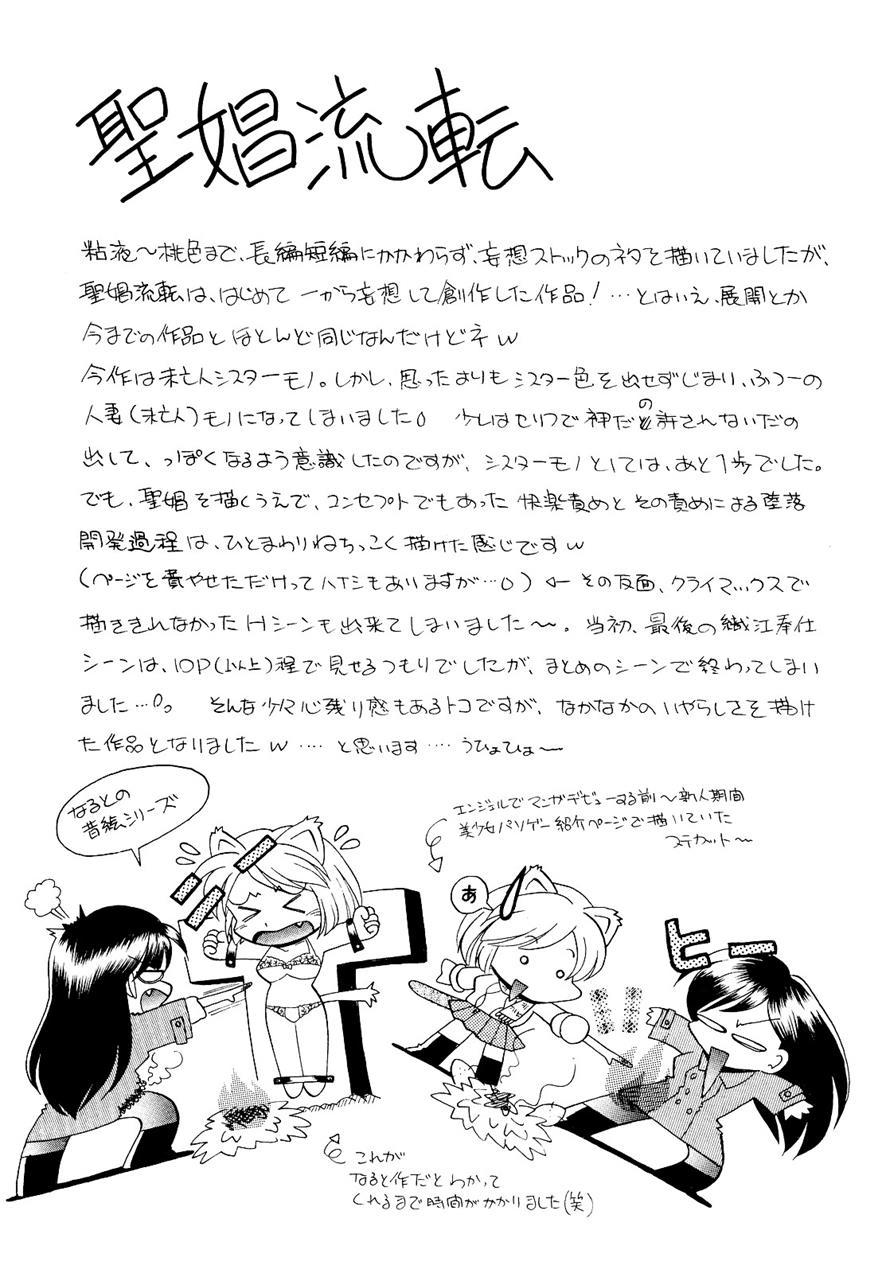 聖娼流転
粘液～桃色まで、長編短編にかかわらず、妄想ストックのネタを描いていましたが、
聖娼流転は、はじめて 一から妄想して創作した作品！…とはいえ、展開とか
今までの作品と ほとんど同じなんだけどネw
今作は未亡人シスターモノ。しかし、思ったよりもシスター色を出せずじまい、ふつーの
人妻（未亡人）モノになってしまいました。 少しはセリフで神だの許されないだの
出して、っぽくなるよう意識したのですが、シスターモノとしては、あと1歩でした。
でも、聖娼を描くうえで、コンセプトでもあった 快楽責めとその責めによる堕落
開発過程は、ひとまわりねちっこく描けた感じですw
（ページを費やせただけってハナシもありますが…）← その反面、クライマックスで
描ききれなかったHシーンも出来てしまいました～。当初、最後の織江奉仕
シーンは、10P（以上）程で見せるつもりでしたが、まとめのシーンで終わってしまい
ました… そんな少々心残り感もあるトコですが、なかなかのいやらしさを描け
た作品となりましたw …. と思います…. うひょひょ～
なるとの
昔絵シリーズ
エンジェルでマンガデビューする前～新人期間
美少女パソゲー紹介ページで描いていた
ステカット～
あ
ヒーー
これが
なると作だとわかって
くれるまで時間がかかりました（笑）